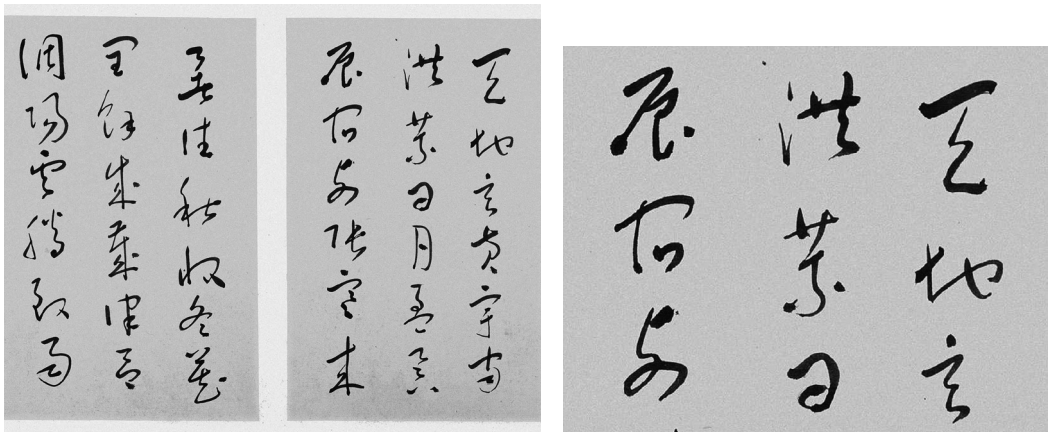 天地玄黃宇宙
洪荒日月盈昃
辰宿列張寒來
暑往秋收冬藏
閏餘成歲律呂
調陽雲騰致雨
天地玄
洪荒日
辰宿列